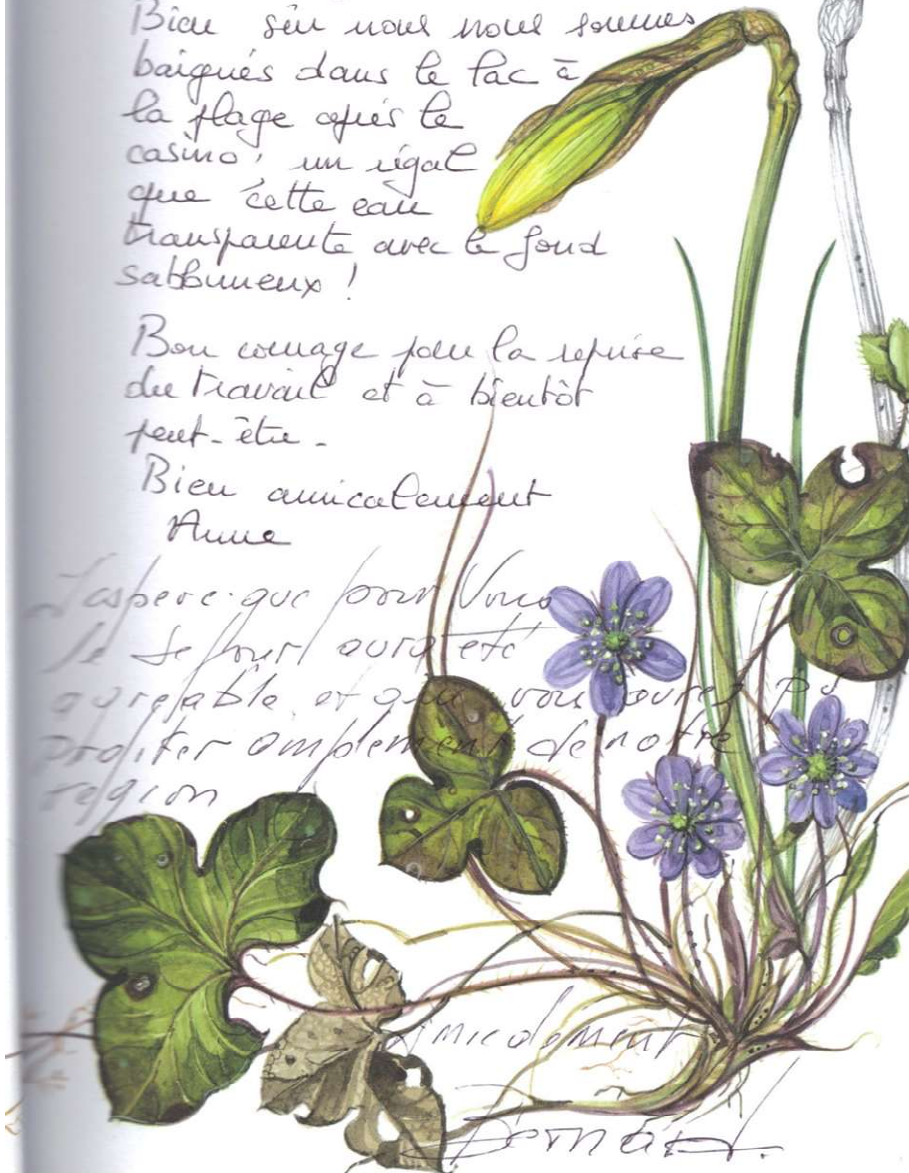 Bien sûr nous nous sommes
baignés dans le lac à
la plage après le
casino, un régal
que cette eau
transparente avec le fond
sabbunneux !
Bon courage pour la reprise
du travail et à bientôt
peut-être -
Bien amicalement
Anne
J'aspere que pour Vous
le sejour aura eté
agreable et que vous aurez pu
profiter amplement de notre
region
amicalement
Bernard.